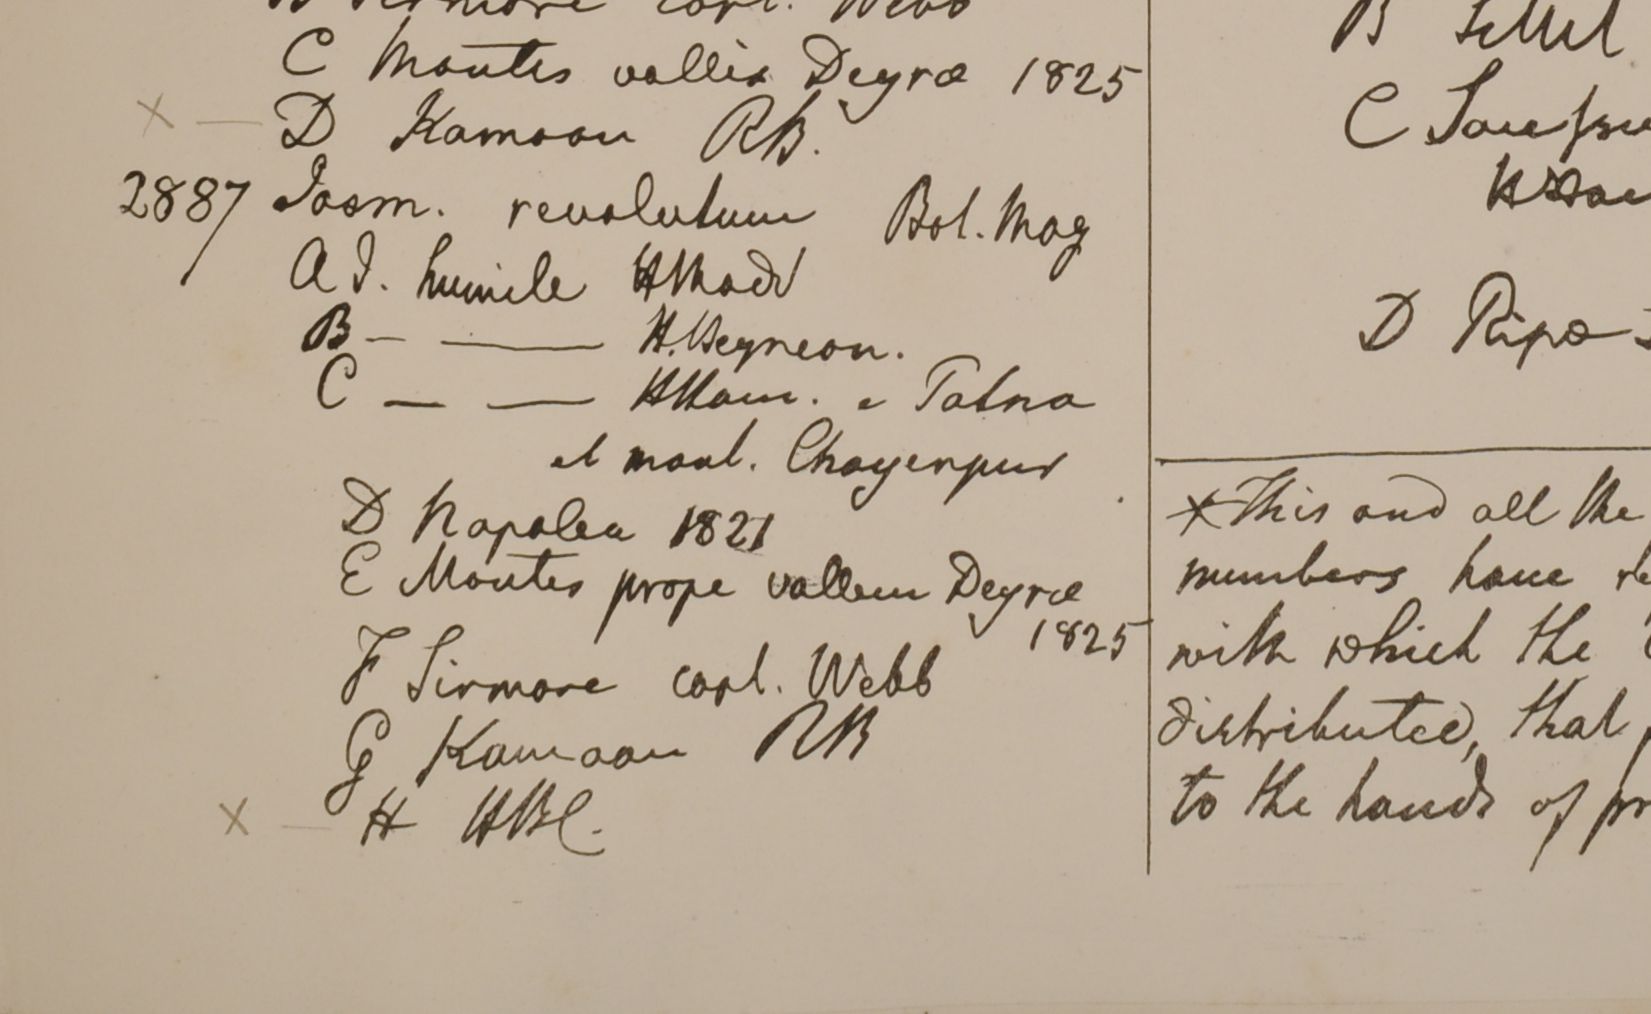 B Sirmore capt. Webb
C Montes vallis Deyræ 1825
× — D Kamaon RB.
2887 Jasm. revolutum Bot. Mag
A J. humile HMadr
B — — H.Heynean.
C — — HHam. e Patna
et mont. Chayenpur
D Napalea 1821
E Montes prope vallem Deyræ
1825
F Sirmore capt. Webb
G Kamaon RB
× — H HBC.
B
C
D Ripæ
× This and all the
numbers have
with which the
distributed, that
to the hands of